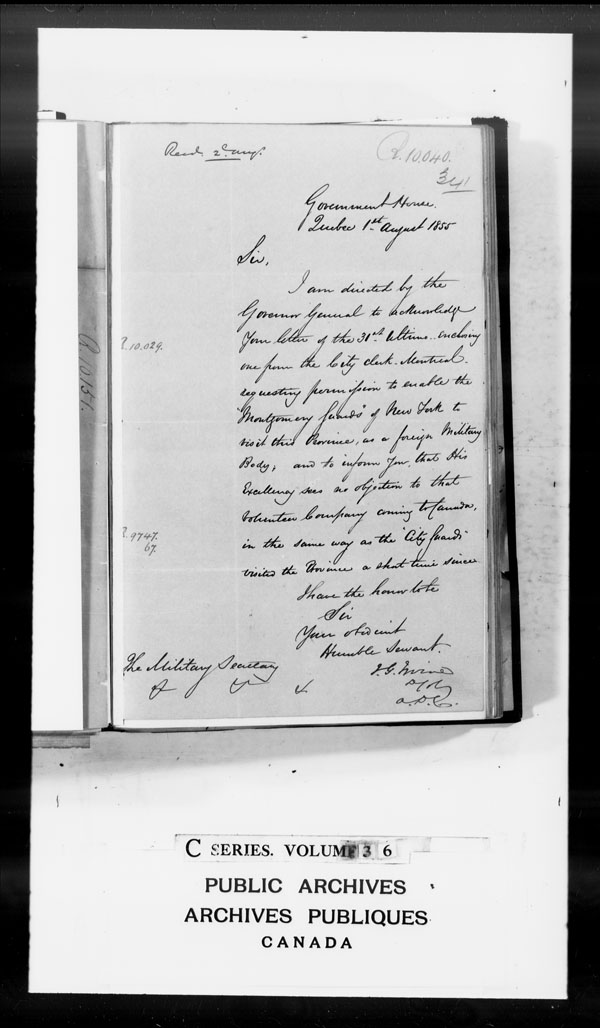 Recd. 2d. Aug.
R.10.040.
341
Government House.
Quebec 1st August 1855
Sir,
I am directed by the
Governor General to acknowledge
Your letter of the 31st Ultimo.. enclosing
R.10.029.
one from the City clerk. Montreal.
requesting permission to enable the
"Montgomery Guards" of New York to
visit this Province, as a foreign Military
Body; and to inform You, that His
Excellency sees no objection to that
Volunteer Company coming to Canada,
R.9747.
67.
in the same way as the "City Guards"
visited the Province a short time since.
I have the honor to be
Sir
Your obedient
Humble Servant.
J.G. Irvine
A.D.C.
The Military Secretary
& & &
R 10151.
C SERIES. VOLUME 3 6
PUBLIC ARCHIVES
ARCHIVES PUBLIQUES
CANADA